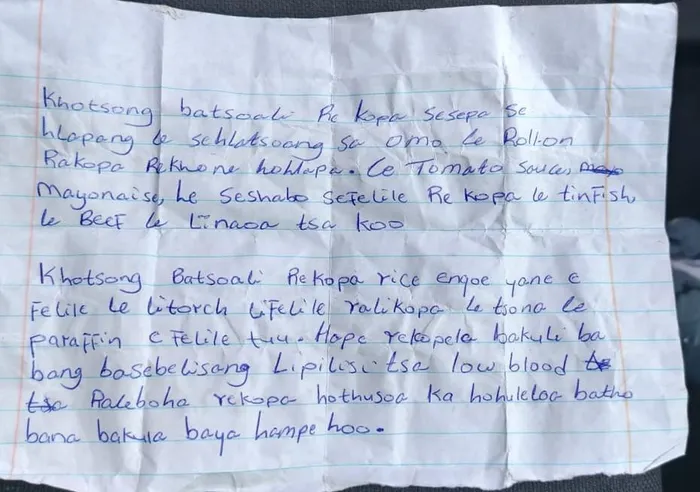 Khotsong batsoali Re kopa sesepa se
hlapang le sehlatsoang sa omo le Roll-on
Rakopa Rekhone hohlapa. Le Tomato sauce,
Mayonaise, Le Seshabo sefelile Re kopa le tinfish,
le Beef le Linaoa tsa koo
Khotsong Batsoali Rekopa rice engoe yane e
felile le litorch lifelile ralikopa le tsona le
paraffin e felile tuu. Hape rekopela bakuli ba
bang basebelisang Lipilisi tsa low blood
Raleboha rekopa hothusoa ka hohuleloa batho
bana bakula baya hampe hoo.